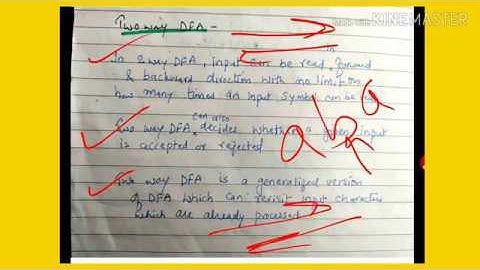 Made with KINEMASTER
Two way DFA -
In 2 way DFA, input can be read in forward
& backward direction with no limit on
how many times an input symbol can be
Two way DFA can also decides whether a given input
is accepted or rejected
Two way DFA is a generalized version
of DFA which can revisit input characters
which are already processed
aba